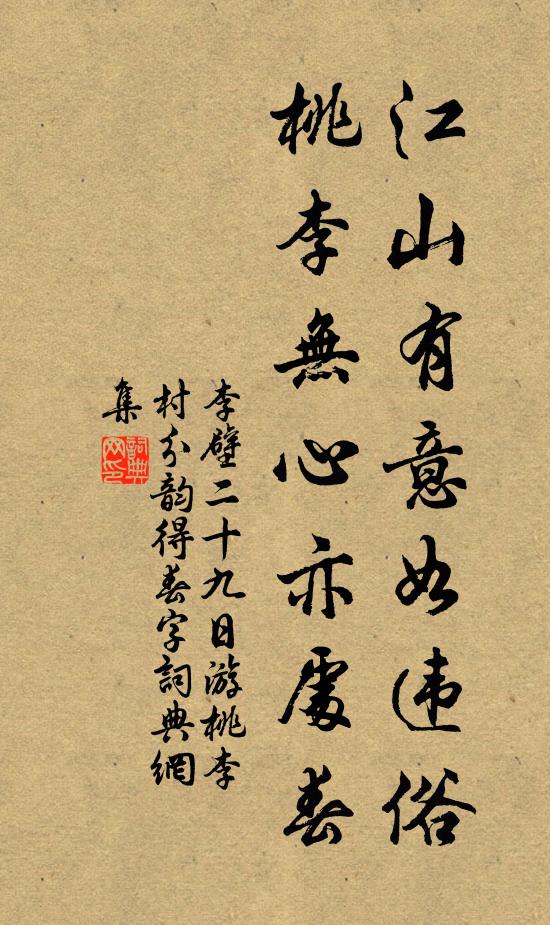 江山有意如违俗
桃李無心亦處春
李壁二十九日游桃李
村分韵得春字詞典網
集
詞典网印